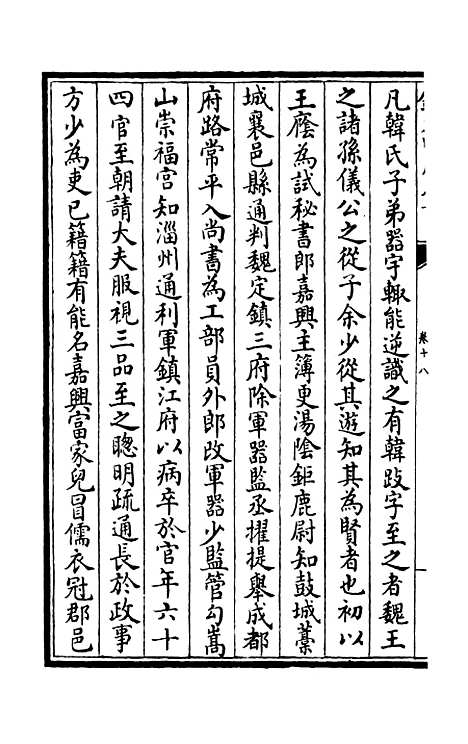 凡韓氏子弟器宇輙能逆識之有韓跂字至之者魏王
之諸孫儀公之從子余少從其遊知其為賢者也初以
王廕為試秘書郎嘉興主簿更湯陰鉅鹿尉知鼓城藁
城襄邑縣通判魏定鎮三府除軍器監丞擢提舉成都
府路常平入尚書為工部員外郎改軍器少監管勾嵩
山崇福宫知淄州通利軍鎮江府以病卒於官年六十
四官至朝請大夫服視三品至之聰明疏通長於政事
方少為吏已籍籍有能名嘉興富家兒冒儒衣冠郡邑
卷十八